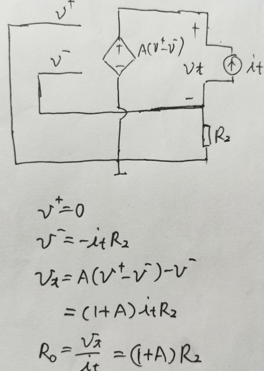 v⁺
v⁻
A(v⁺-v⁻)
+
vt
-
it
R₂
v⁺=0
v⁻=-itR₂
vx=A(v⁺-v⁻)-v⁻
=(1+A)itR₂
R₀=vx/it=(1+A)R₂